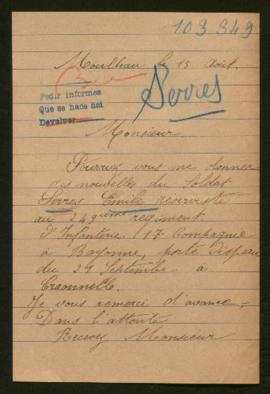 103349
le 15 Août.
Pedir informes
Que se hace así
Devolver
Serres
Monsieur
Pourriez vous me donner
des nouvelle du Soldat
Serres Emile réserviste
au 249ième régiment
d'Infanterie 17 Compagnie
à Bayonne, porté disparu
du 24 Septembre à
Craonnelle.
Je vous remerci d'avance.
Dans l'attente
Recevez Monsieur